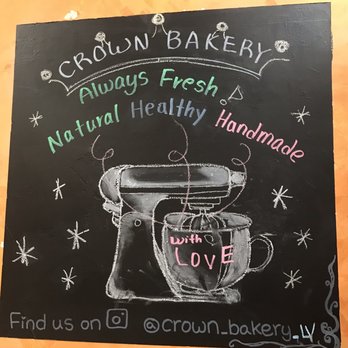 CROWN BAKERY
Always Fresh
Natural Healthy Handmade
with
LOVE
Find us on @crown_bakery_LV